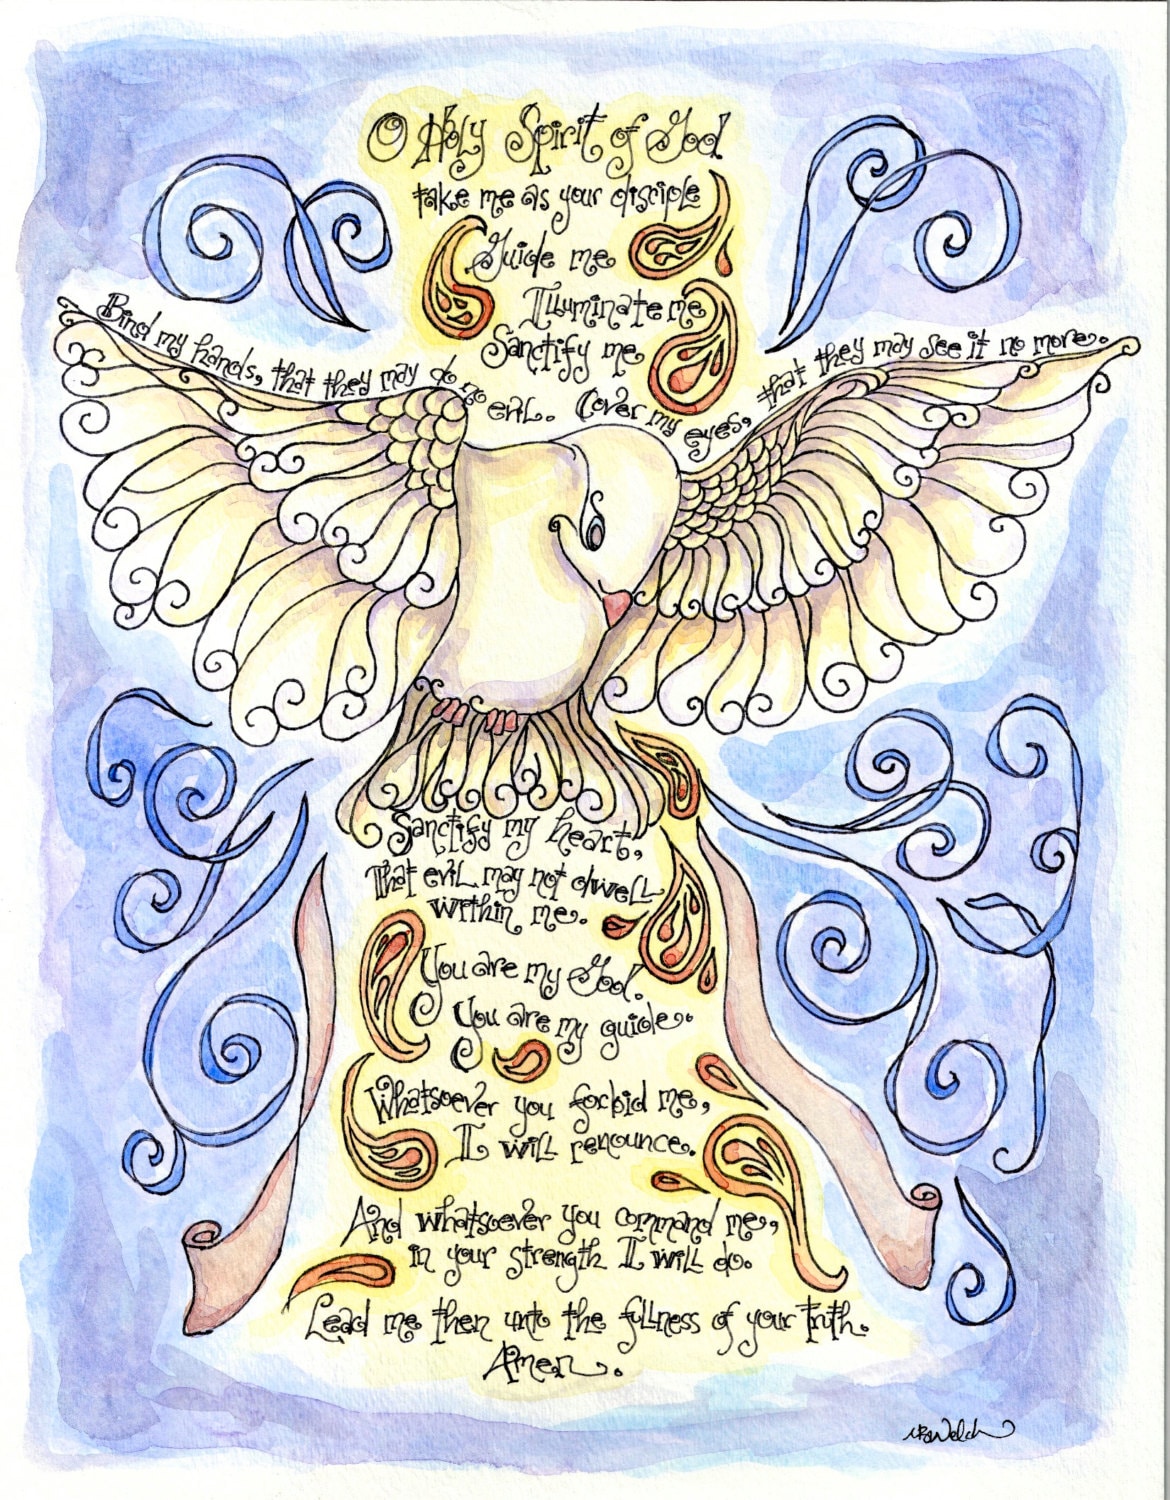 O Holy Spirit of God
take me as your disciple
Guide me
Illuminate me
Sanctify me
Bind my hands, that they may do no evil.
Cover my eyes, that they may see it no more.
Sanctify my heart,
That evil may not dwell
within me.
You are my God.
You are my guide.
Whatsoever you forbid me,
I will renounce.
And whatsoever you command me,
in your strength I will do.
Lead me then unto the fullness of your truth.
Amen.